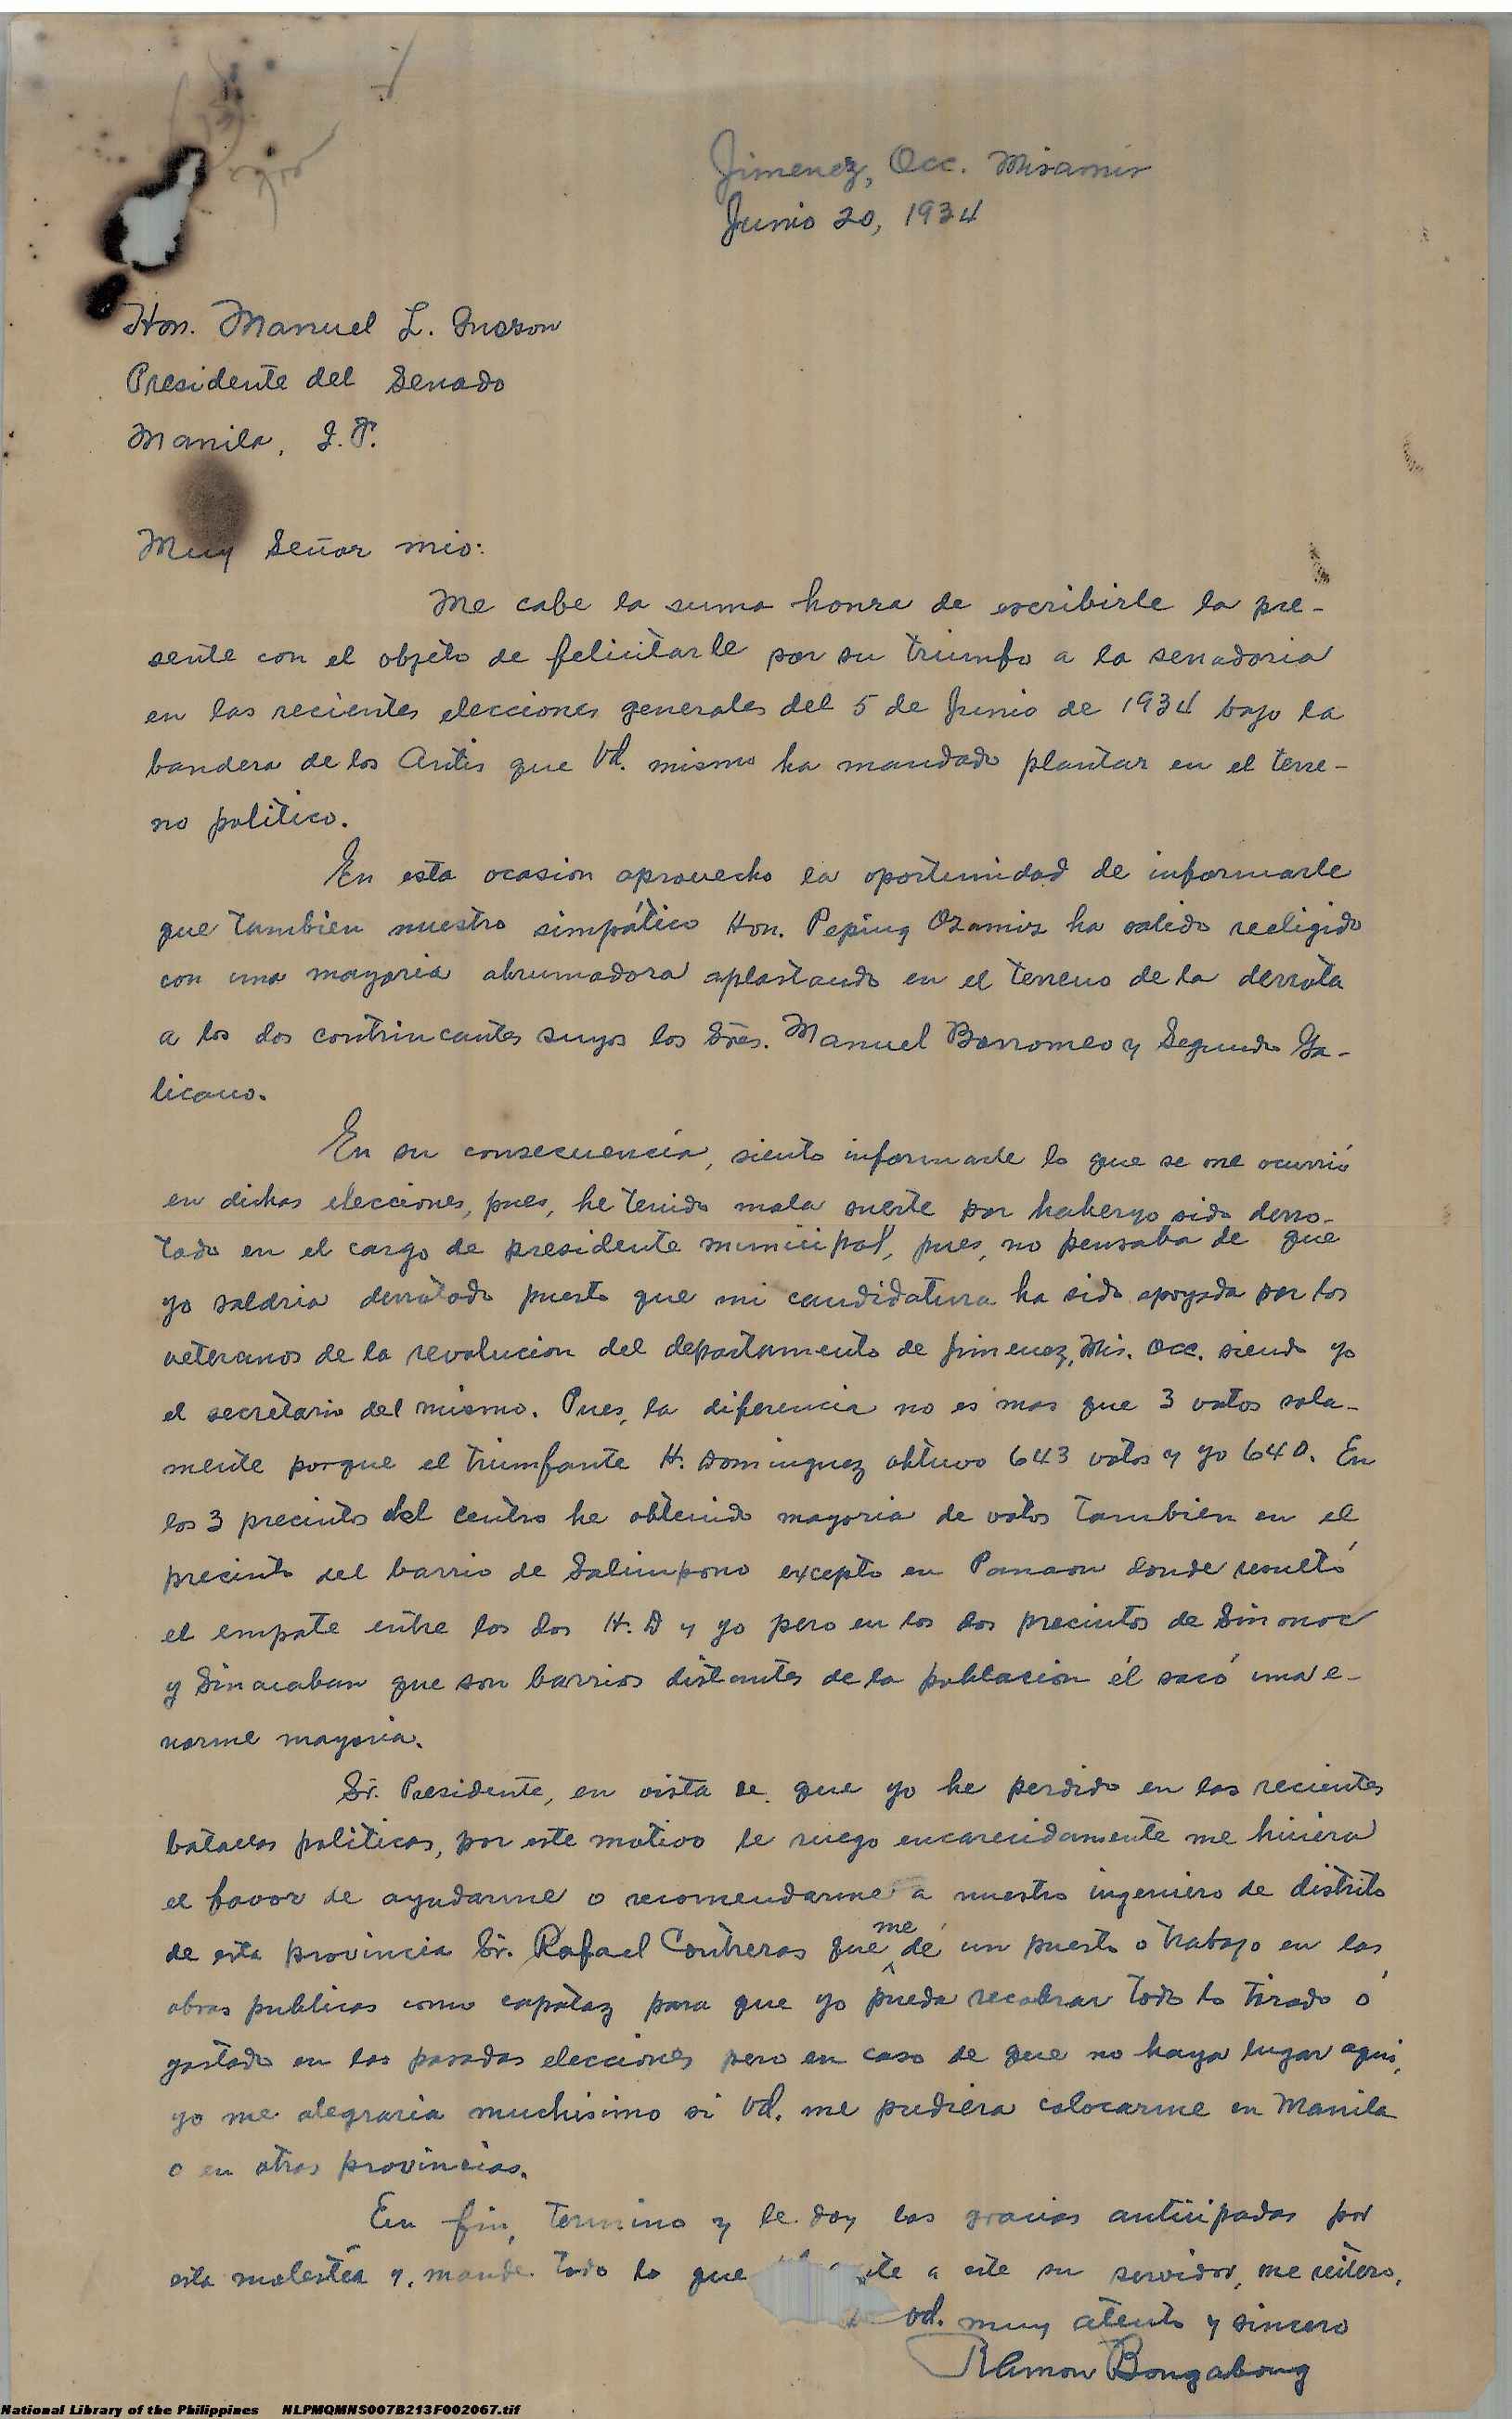 Jimenez, Occ. Misamis
Junio 20, 1934
Hon. Manuel L. Quezon
Presidente del Senado
Manila, I. F.
Muy Señor mio:
Me cabe la suma honra de escribirle la pre-
sente con el objeto de felicitarle por su triumfo a la senadoria
en las recientes elecciones generales del 5 de Junio de 1934 bajo la
bandera de los Antis que Vd. mismo ha mandado plantar en el terre-
no politico.
En esta ocasion aprovecho la oportunidad de informarle
que tambien nuestro simpático Hon. Peping Ozamiz ha salido reeligido
con una mayoria abrumadora aplastando en el terreno de la derrota
a los dos contrincantes suyos los Sres. Manuel Borromeo y Segundo Ga-
licano.
En su consecuencia, siento informarle lo que se me ocurrió
en dichas elecciones, pues, he tenido mala suerte por haberyo sido derro-
tado en el cargo de presidente municipal, pues, no pensaba de que
yo saldria derrotado puesto que mi candidatura ha sido apoyada por los
veteranos de la revolucion del departamento de Jimenez, Mis. Occ. siendo yo
el secretario del mismo. Pues, la diferencia no es mas que 3 votos sola-
mente porque el triumfante H. Dominguez obtuvo 643 votos y yo 640. En
los 3 precintos del centro he obtenido mayoria de votos tambien en el
precinto del barrio de Salimpono excepto en Panaon donde resultó
el empate entre los dos H. D y yo pero en los dos precintos de Sinonoc
y Sinacaban que son barrios distantes de la poblacion él sacó una e-
norme mayoria.
Sr. Presidente, en vista de que yo he perdido en las recientes
batallas politicas, por este motivo le ruego encarecidamente me hiciera
el favor de ayudarme o recomendarme a nuestro ingeniero de distrito
de esta provincia Sr. Rafael Contreras que me dé un puesto o trabajo en las
obras publicas como capataz para que yo pueda recobrar todo lo tirado ó
gastado en las pasadas elecciones pero en caso de que no haya lugar aqui,
yo me alegraria muchisimo si Vd. me pudiera colocarme en Manila
o en otras provincias.
En fin, termino y le doy las gracias anticipadas por
esta molestia y, mande todo lo que a este su servidor, me reitero,
de Vd. muy atento y sincero
Ramon Bongabong
National Library of the Philippines NLPMQMNS007B213F002067.tif